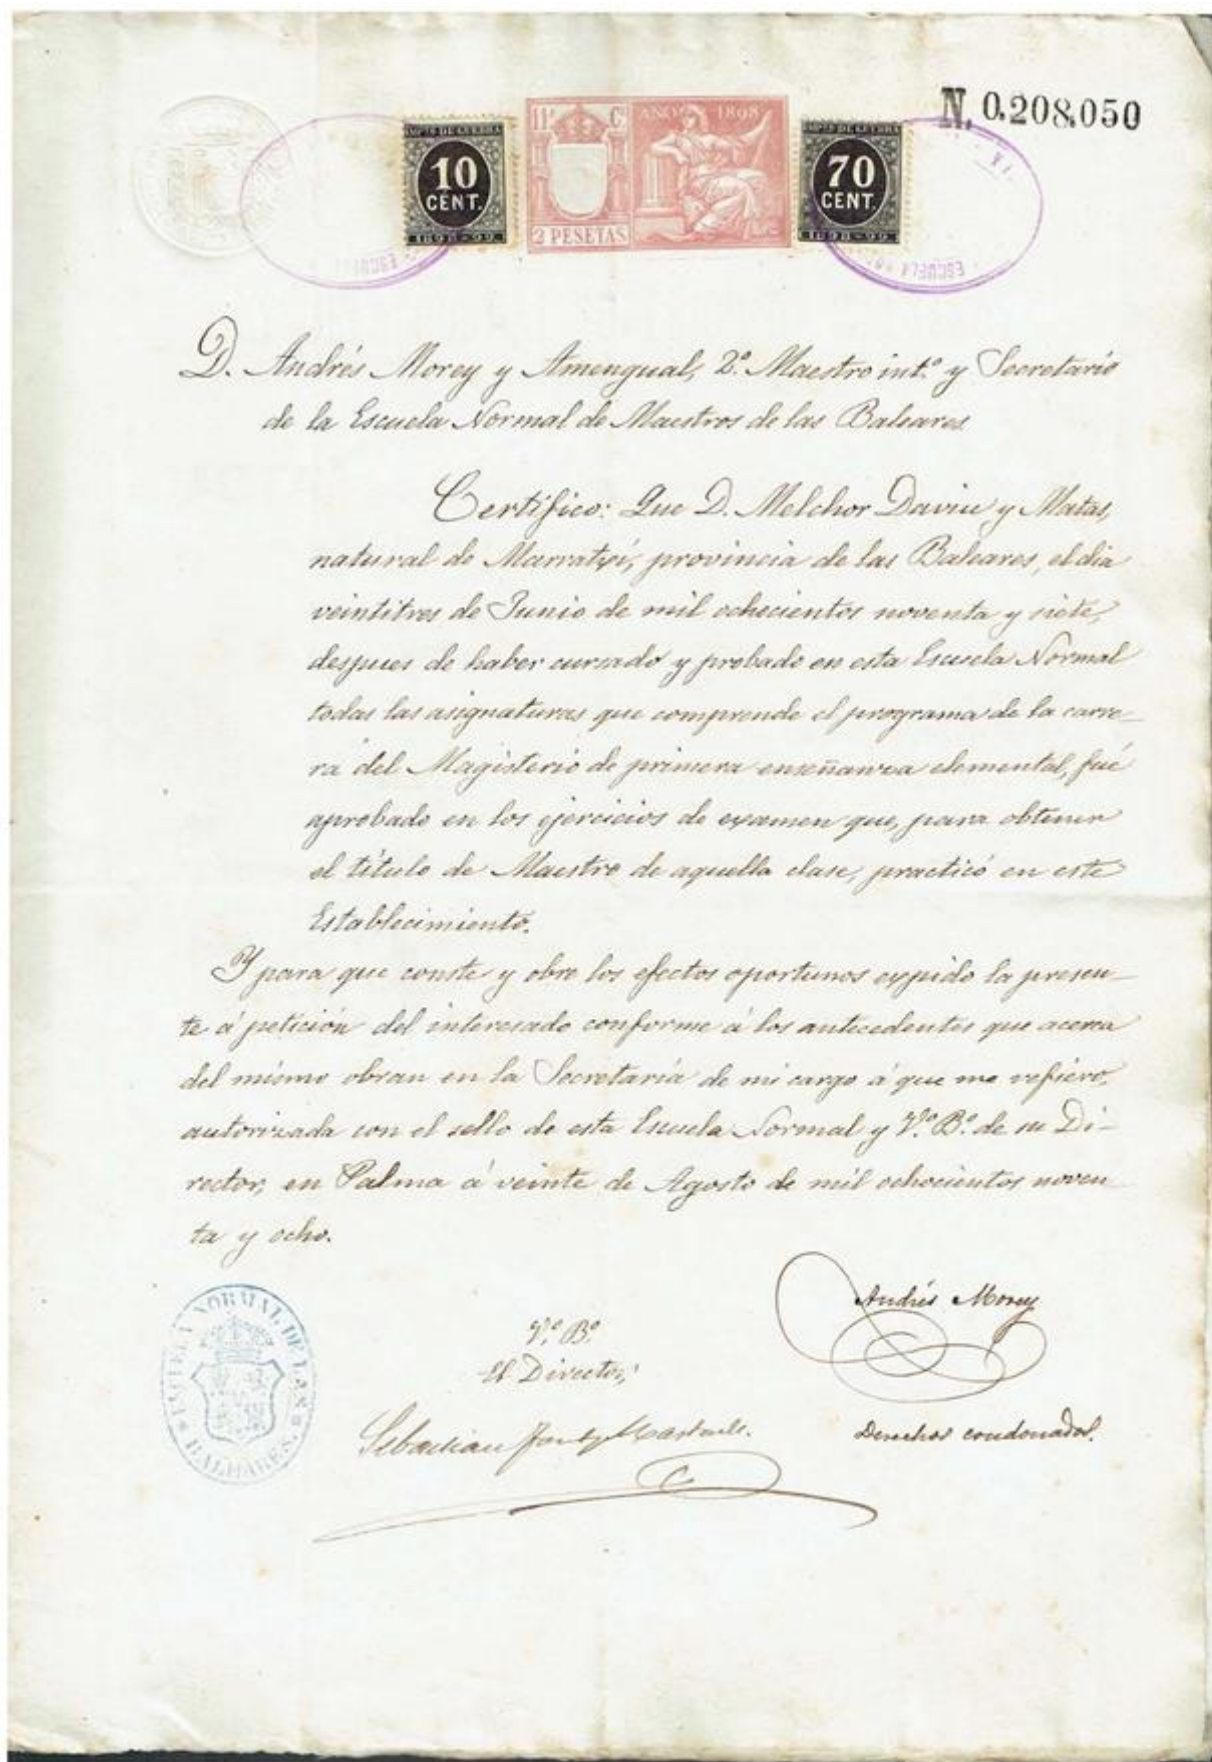 N. 0.208.050
IMPTO DE GUERRA
10
CENT.
1898-99
11ª C.
AÑO 1898
2 PESETAS
IMPTO DE GUERRA
70
CENT.
1898-99
ESCUELA
D. Andrés Morey y Amengual, 2º Maestro int.º y Secretario
de la Escuela Normal de Maestros de las Baleares.
Certifico: Que D. Melchor Daviu y Matas,
natural de Marratxí, provincia de las Baleares, el dia
veintitres de Junio de mil ochocientos noventa y siete,
despues de haber cursado y probado en esta Escuela Normal
todas las asignaturas que comprende el programa de la carre-
ra del Magisterio de primera enseñanza elemental, fué
aprobado en los ejercicios de examen que, para obtener
el título de Maestro de aquella clase, practicó en este
Establecimiento.
Y para que conste y obre los efectos oportunos expido la presen-
te á petición del interesado conforme á los antecedentes que acerca
del mismo obran en la Secretaría de mi cargo á que me refiero,
autorizada con el sello de esta Escuela Normal y V.º B.º de su Di-
rector, en Palma á veinte de Agosto de mil ochocientos noven
ta y ocho.
Andrés Morey
V.º B.º
El Director,
Sebastian Font y
Derechos condonados.
ESCUELA NORMAL DE LAS BALEARES